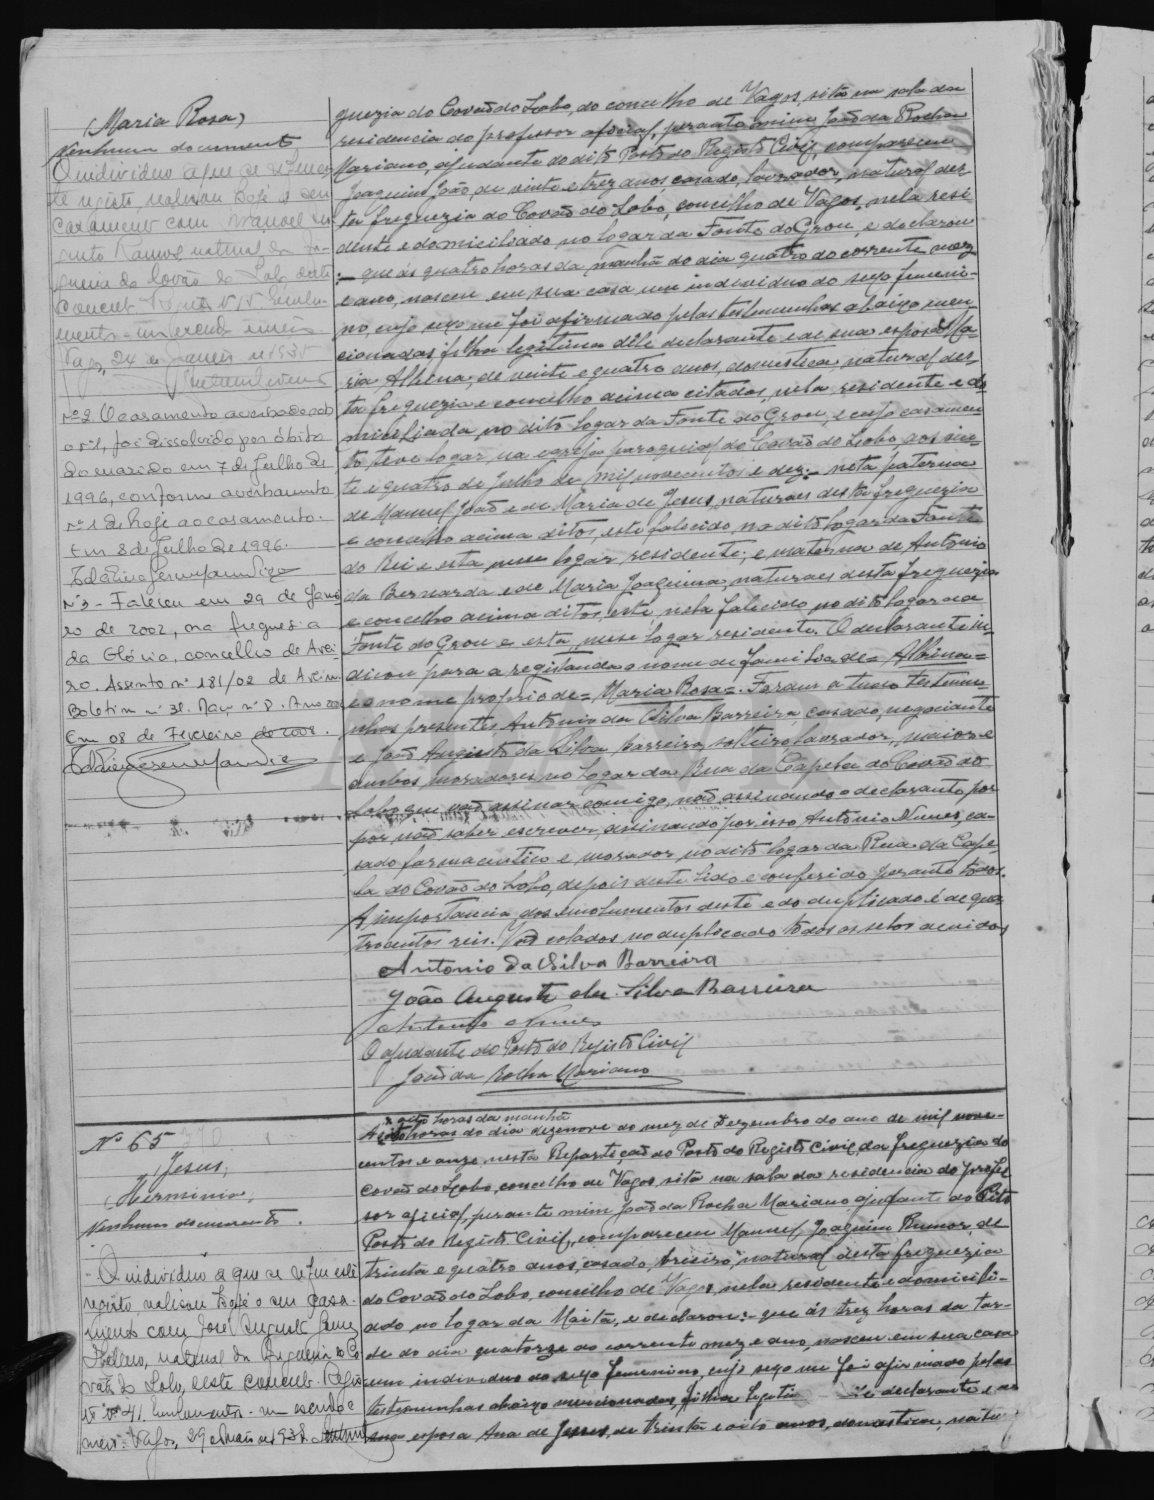 (Maria Rosa)
Nenhum documento
O individuo a que se refere es-
te registo, realisou hoje o seu
casamento com Manoel
Ramos natural da fre-
guezia do Covão do Lobo, deste
Concelho
Vagos, 24 de Janeiro de 1935
Nº 2 O casamento averbado sob
o nº 1, foi dissolvido por óbito
do marido em 7 de Julho de
1996, conforme averbamento
nº 1 de hoje ao casamento.
Em 8 de Julho de 1996.
Nº 3 - Faleceu em 29 de Janei
ro de 2002, na freguesia
da Glória, concelho de Avei-
ro. Assento nº 181/02 de Aveiro.
Boletim nº 38. Maço nº 8. Ano 200
Em 08 de Fevereiro de 2008.
guezia do Covão do Lobo, do concelho de Vagos, sita em sala da
residencia do professor oficial, perante mim João da Rocha
Mariano, ajudante do dito Posto do Registo Civil, compareceu
Joaquim João, de vinte e trez anos, casado, lavrador, natural des-
ta freguezia do Covão do Lobo, concelho de Vagos, nela resi-
dente e domiciliado no logar da Fonte do Grou, e declarou
:- que ás quatro horas da manhã do dia quatro do corrente mez
e ano, nasceu em sua casa um individuo do sexo femeni-
no, cujo sexo me foi afirmado pelas testemunhas abaixo men
cionadas, filha legitima dêle declarante e de sua esposa Ma-
ria Albina, de vinte e quatro anos, domestica, natural des-
ta freguezia e concelho acima citados, nela residente e do
miciliada no dito logar da Fonte do Grou, e cujo casamen-
to teve logar, na egreja paroquial do Covão do Lobo, aos vin-
te e quatro de Julho de mil novecentos e dez:- neta paterna
de Manuel João e de Maria de Jesus, naturaes desta freguezia
e concelho acima ditos, este falecido, no dito logar da Fonte
do Rei e esta nesse logar residente; e materna de Antonio
da Bernarda e de Maria Joaquina, naturaes desta freguezia
e concelho acima ditos, este, nela falecido, no dito logar da
Fonte do Grou e esta, nesse logar residente. O declarante in-
dicou para a registanda o nome de familia de = Albina =
e o nome proprio de = Maria Rosa =. Foram a tudo testemu-
nhas presentes Antonio da Silva Barreira, casado, negociante
e João Augusto da Silva Barreira, solteiro, lavrador, maiores
ambos moradores no logar da Rua da Capela do Covão do
Lobo que vão assinar comigo, não assinando o declarante por
por não saber escrever, assinando por isso Antonio Nunes, ca-
sado, farmaceutico e morador no dito logar da Rua da Cape-
la do Covão do Lobo, depois deste lido e conferido perante todos.
A importancia dos emolumentos deste e do duplicado é de qua-
trocentos reis. Vão colados no duplicado todos os selos devidos
Antonio da Silva Barreira
João Augusto da Silva Barreira
Antonio Nunes
O ajudante do Posto do Registo Civil
João da Rocha Mariano
Nº 65
Jesus,
(Herminia,
Nenhum documento.
- O individuo a que se refere este
registo realisou hoje o seu casa-
mento com José Augusto
natural da freguezia do Co
vão do Lobo, deste concelho.
nº 41.
Vagos, 29 de Maio de 1932
ás oito horas da manhã
horas do dia dezenove do mez de Dezembro do ano de mil nove-
centos e onze, nesta Repartição do Posto do Registo Civil da freguezia do
Covão do Lobo, concelho de Vagos, sita na sala da residencia do profes
sor oficial, perante mim João da Rocha Mariano, ajudante do dito
Posto do Registo Civil, compareceu Manuel Joaquim Rumor, de
trinta e quatro anos, casado, natural desta freguezia
do Covão do Lobo, concelho de Vagos, nela residente e domicili-
ado no logar da Moita, e declarou:- que ás trez horas da tar-
de do dia quatorze do corrente mez e ano, nasceu em sua casa
um individuo do sexo femenino, cujo sexo me foi afirmado pelas
testemunhas abaixo mencionadas, filha legiti declarante e de
sua esposa Ana de Jesus, de trinta e oito anos, domestica, natu-